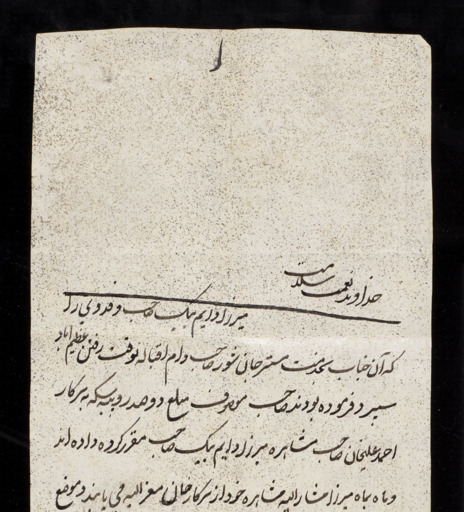 خداوند نعمت سلامت
میرزا دایم بیک صاحب و فدوی را
که آن جناب بخدمت مستر جانی شور صاحب دام اقباله بوقت رفتن عظیم آباد
سپرد فرموده بودند صاحب موصوف مبلغ دو صد روپیه سکه بسرکار
احمد علیخان صاحب مشاهره میرزا دایم بیک صاحب مقرر کرده داده اند
و ماه بماه میرزا مشار الیه مشاهره خود از سرکار خان معز الیه می یابند و موضع